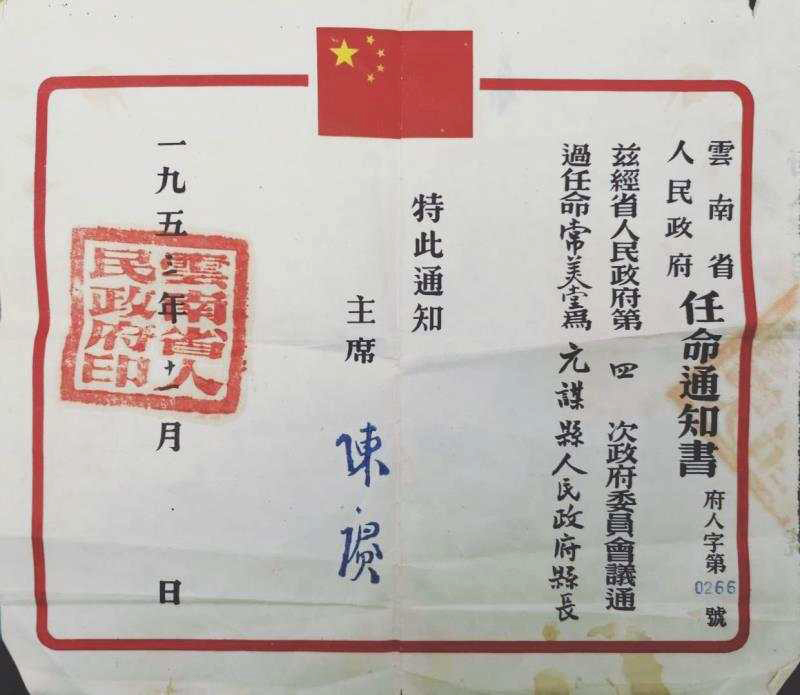 雲南省
人民政府
任命通知書 府人字第0266號
茲經省人民政府第 四 次政府委員會議通
過任命常美堂爲元謀縣人民政府縣長
特此通知
主席 陳賡
一九五 年十一月 日
雲南省人
民政府印